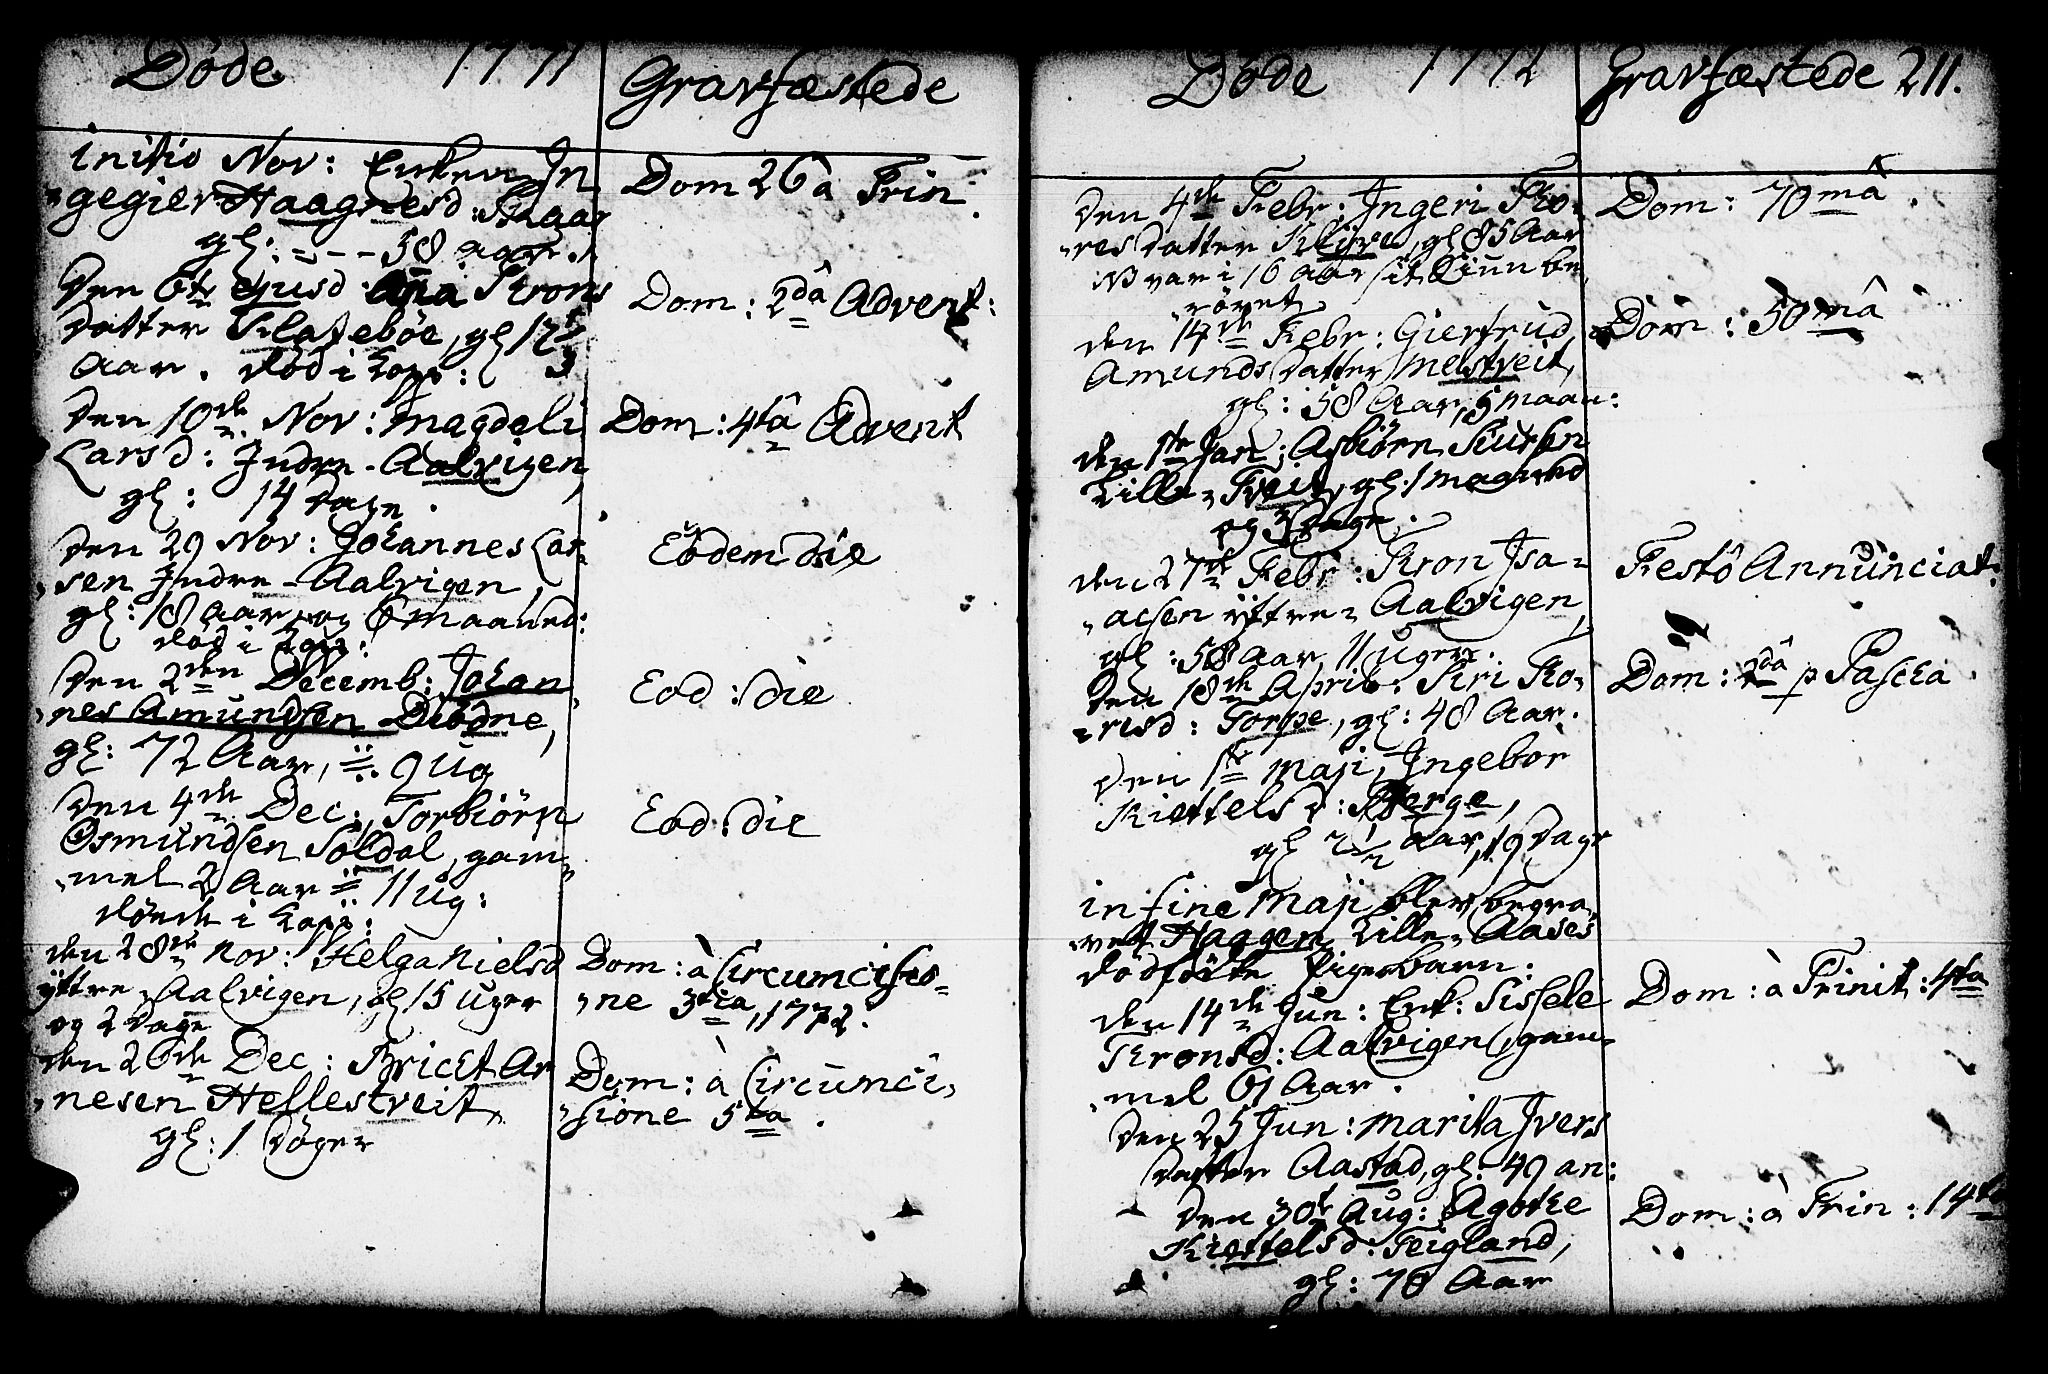 Døde 1771
Gravfæstede
initio Nov: Enken In
gegier Haagnesd: Skaar
gl: - - - 58 aar.
Dom 26â Trin.
Den 6te ejusd Ana Trons
datter Klatebøe, gl 12½
Aar. død i Kopp:
Dom: 2dâ Advent:
Den 10de Nov: Magdeli
Larsd: Indre-Aalvigen,
gl: 14 dage.
Dom: 4tâ Advent
Den 29 Nov: Johannes Lar
sen Indre-Aalvigen,
gl: 18 aar og 6 Maaned:
død i Kop:
Eodem die
Den 2den Decemb: Johan
nes Amundsen Diødne,
gl: 72 Aar, 9 ug
Eod: die
Den 4de Dec: Torbiörn
Osmundsen Soldal, gam
mel 2 Aar 11 ug:
døende i Kopp:
Eod: die
den 28de Nov: Helga Nielsd
ÿttre-Aalvigen, gl 15 Uger
og 2 dage
Dom: à Circumcisio
ne 3tia, 1772.
den 26de Dec: Bricet Ar
nesen Hellestveit,
gl: 1 Døger
Dom: à Circumci
sione 5ta.
Døde 1772
Gravfæstede 211.
Den 4de Febr: Ingeri To
resdatter Klyve, gl 85 Aar
NB var i 16 aar sit Siun be
røvet
Dom: 70mâ.
den 14de Febr: Giertrud
Amundsdatter Melstveit,
gl: 58 Aar, 5 Maan:
Dom: 50mâ
den 1te Jan: Asbiørn Siursen
Lille-Tveit, gl: 1 maaned
og 3 dage.
den 27de Febr: Tron Isa-
acsen ÿttre-Aalvigen,
gl: 58 aar 11 uger.
Festô Annunciat:
Den 18de April: Siri To
resd: Torpe, gl: 48 Aar.
Dom: 2dâ p Pascha.
Den 1te Maji, Ingebor
Kiettelsd: Berge,
gl 2½ Aar, 19 dage
in fine Maji blev begra
vett Haagen Lille-Aases
dödfödte Pigebarn:
den 14de Jun: Enk: Sissele
Tronsd: Aalvigen, gam
mel 61 Aar.
Dom: à Trinit: 4ta
Den 25 Jun: Marita Ivers
datter Aastad, gl: 49 an:
Den 30t Aug: Agothe
Kiettelsd: Seigland,
gl: 78 Aar
Dom: à Trin: 14ta